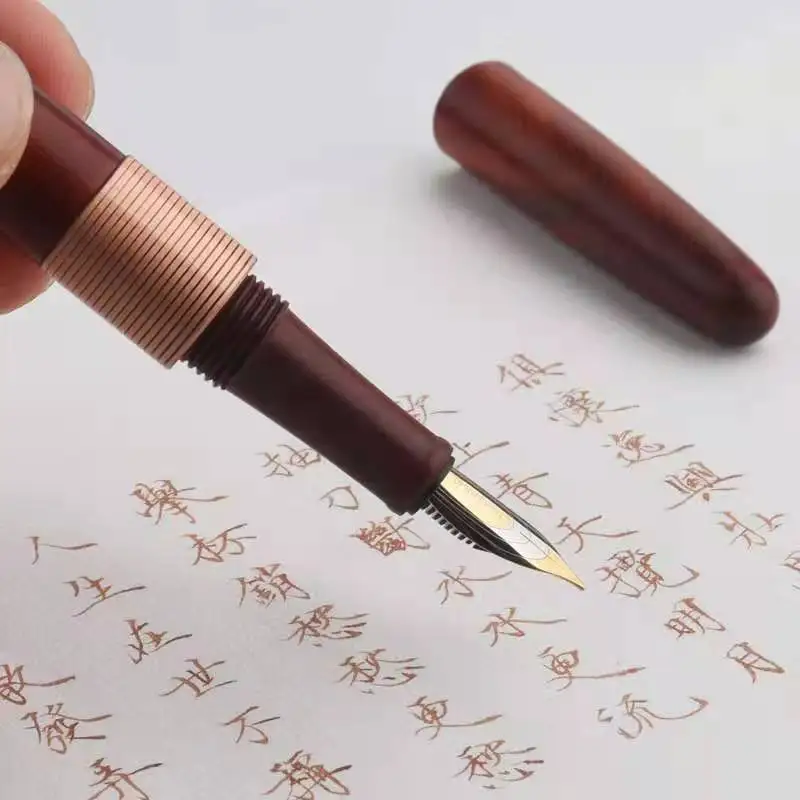 俱懷逸興壯
欲上青天攬明月
抽刀斷水水更流
舉杯銷愁愁更愁
人生在世不稱
散發弄